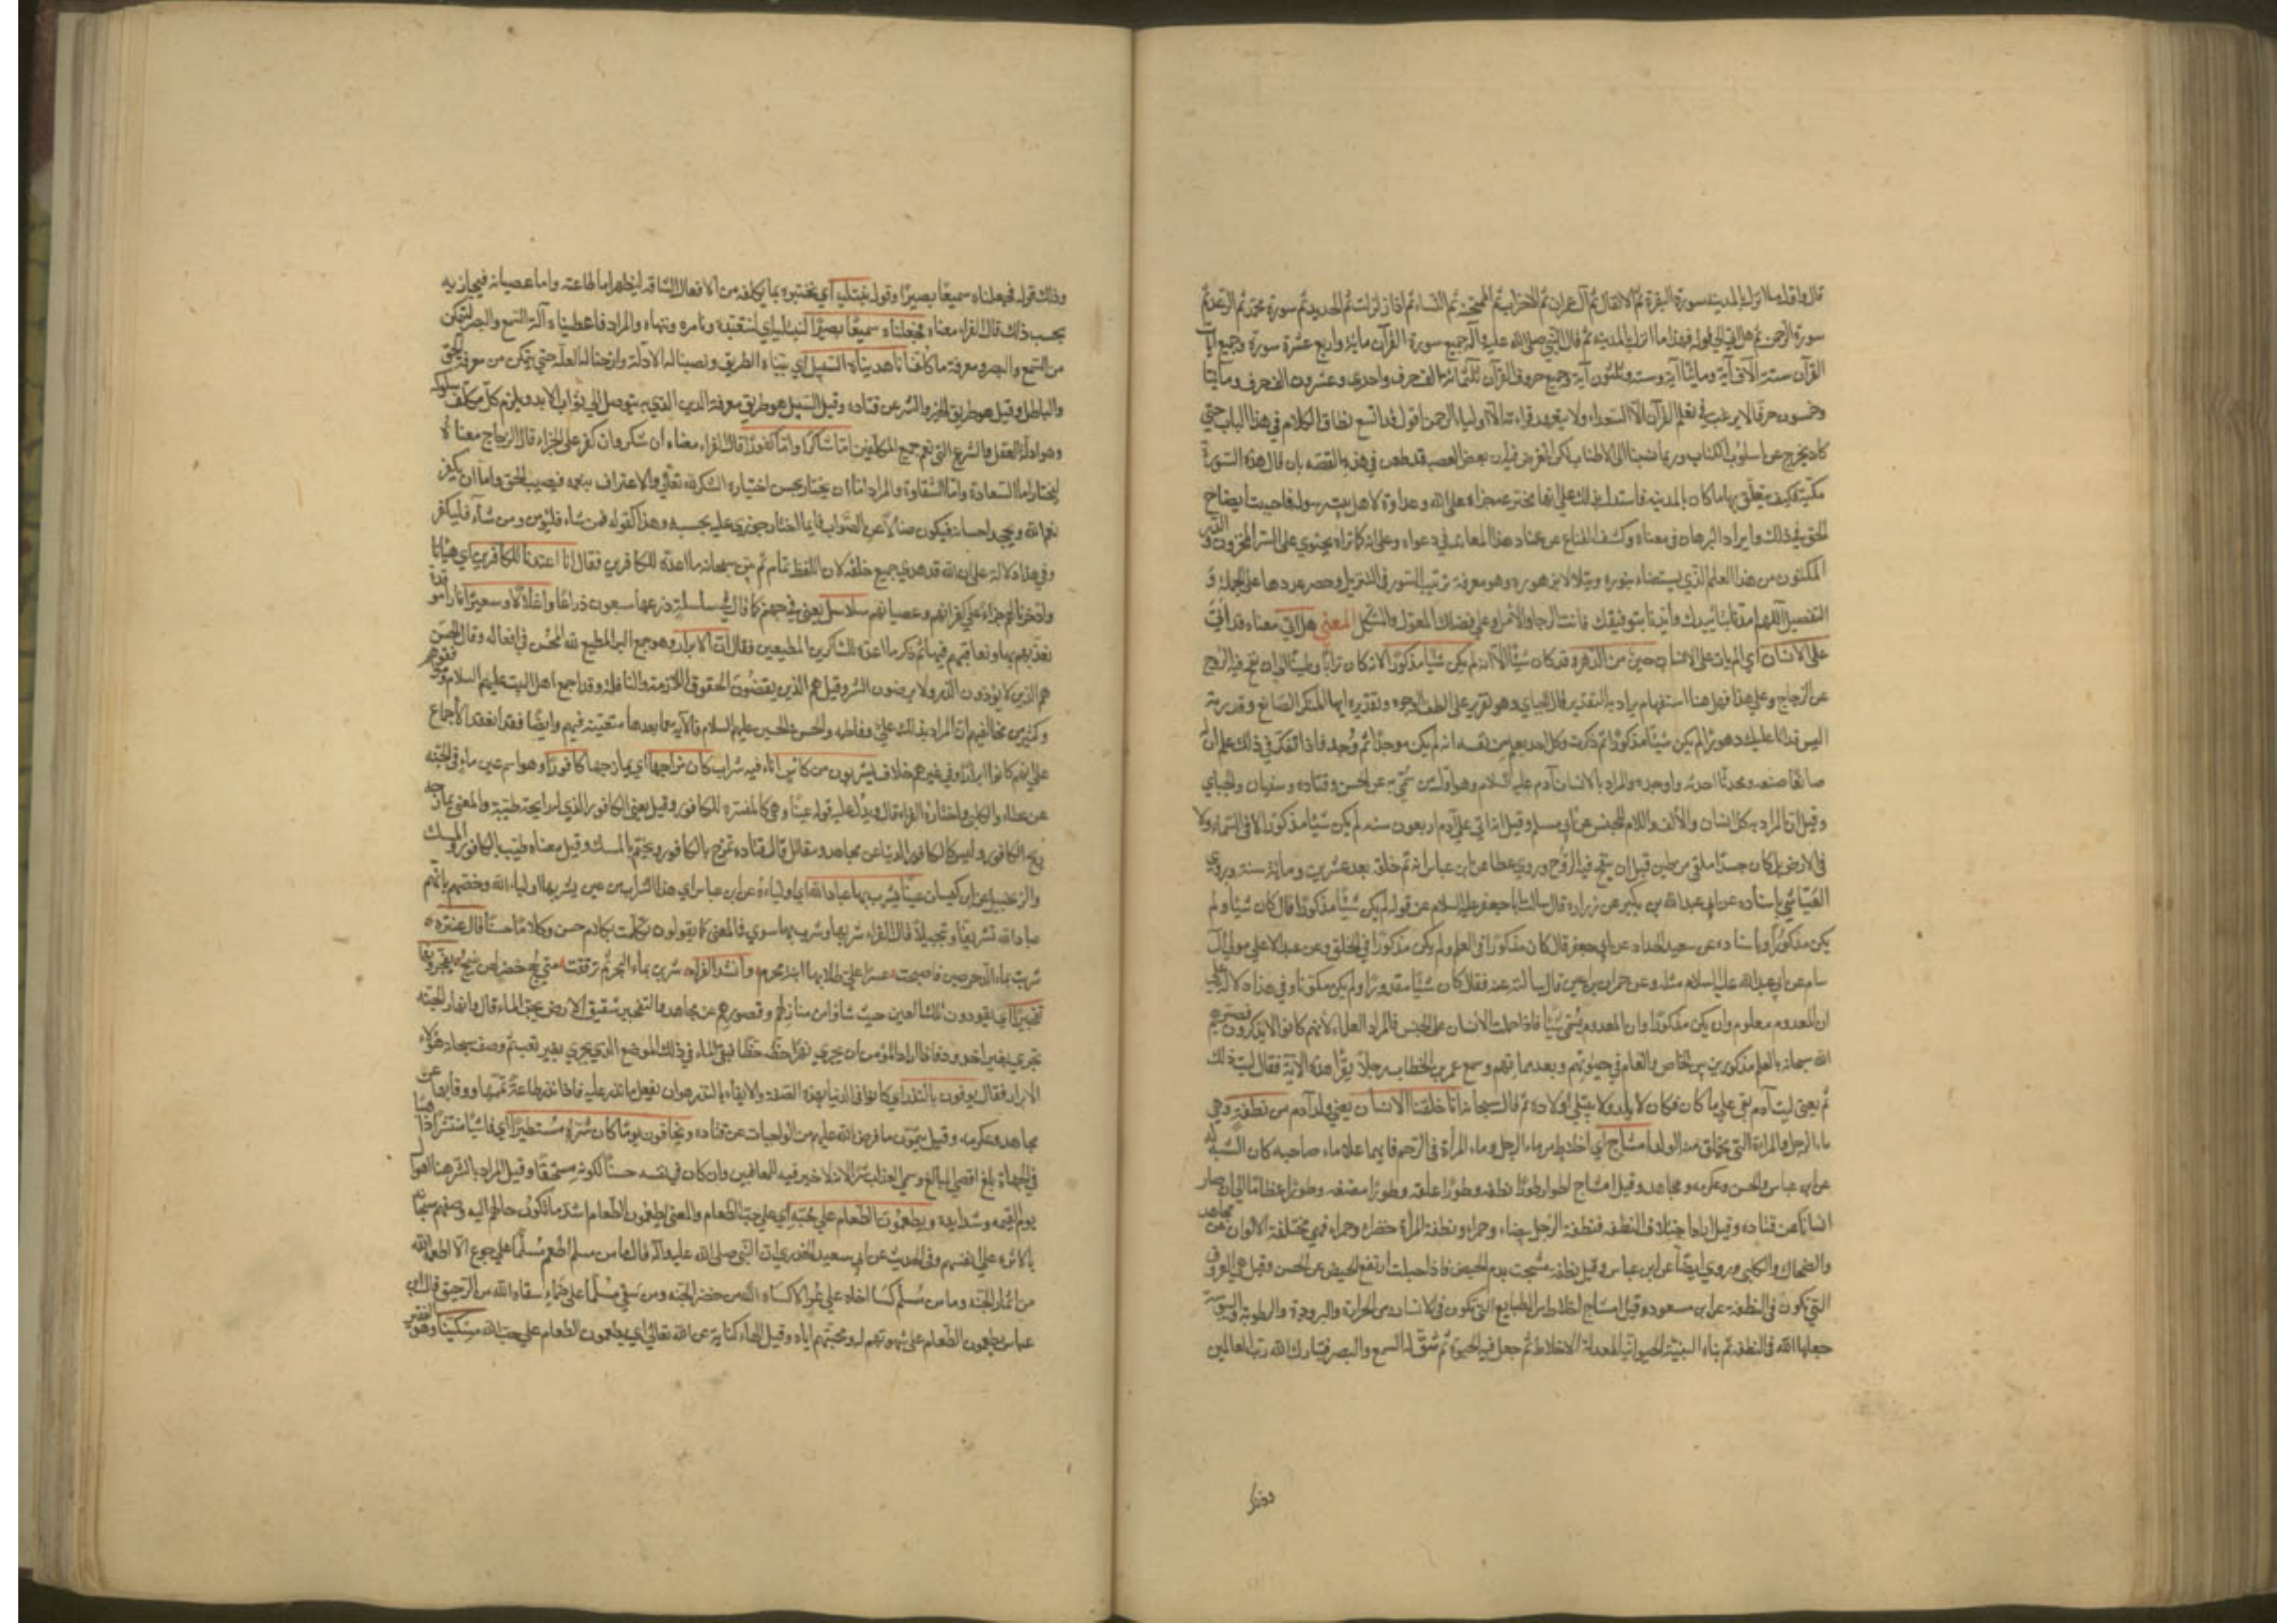 قال واقل ما نزل بالمدينة سورة البقرة ثم الانفال ثم آل عمران ثم الاحزاب ثم الممتحنة ثم النساء ثم اذا زلزلت ثم الحديد ثم سورة محمد ثم الرعد ثم
سورة الرحمن ثم هل اتى الى قوله فهذا ما انزل بالمدينة ثم قال النبي صلى الله عليه وآله جميع سورة القرآن مائة واربع عشرة سورة وجميع آيات
القرآن ستة آلاف آية ومائتا آية وستة وثلثون آية وجميع حروف القرآن ثلثمائة الف حرف واحدى وعشرون الف حرف ومائتا
وخمسون حرفا لا يرغب في تعلم القرآن الا السعداء ولا يتعهد قراءته الا اولياء الرحمن اقول قد اتسع نطاق الكلام في هذا الباب حتى
كاد يخرج عن اسلوب الكتاب وربما نسبنا الى الاطناب لكن الغرض فيه ان بعض العصبة قد طعن في هذه القصة بان قال هذه السورة
مكية فكيف يتعلق بها ما كان بالمدينة فاستدل بذلك على انها مخترعة جراة على الله وعداوة لاهل بيت رسوله فاحببت ايضاح
الحق في ذلك وايراد البرهان في معناه وكشف القناع عن عناد هذا المعاند في دعواه وعلى انه كما تراه يحتوي على السر المخزون والدر
المكنون من هذا العلم الذي يستضاء بنوره ويتلألأ بزهوره وهو معرفة ترتيب السور في التنزيل وحصر عددها على الجملة و
التفصيل اللهم امددنا بتأييدك وأيدنا بتوفيقك فانت الرجاء والامل وعلى فضلك المعول والمتكل المعنى هل اتى معناه قد اتى
على الانسان اي الم يأت على الانسان حين من الدهر قد كان شيئا الا انه لم يكن شيئا مذكورا لانه كان ترابا وطينا الى ان نفخ فيه الروح
عن الزجاج وعلى هذا فهل هنا استفهام يراد به التقرير قال الجبائي وهو تقرير على الطف الوجوه وتقديره ايها المنكر الصانع وقدرته
اليس قد اتى عليك دهور لم تكن شيئا مذكورا ثم ذكرت وكل احد يعلم من نفسه انه لم يكن موجودا ثم وجد فاذا تفكر في ذلك علم ان له
صانعا صنعه ومحدثا احدثه واوجده والمراد بالانسان آدم عليه السلام وهو اول من سمي به عن الحسن وقتادة وسفيان والجبائي
وقيل ان المراد به كل انسان والالف واللام للجنس عن ابي مسلم وقيل انه اتى على آدم اربعون سنة لم يكن شيئا مذكورا لا في السماء ولا
في الارض بل كان جسدا ملقى من طين قبل ان ينفخ فيه الروح وروى عطا عن ابن عباس انه تم خلقه بعد عشرين ومائة سنة وروى
العياشي باسناده عن عبد الله بن بكير عن زرارة قال سالت ابا جعفر عليه السلام عن قوله لم يكن شيئا مذكورا قال كان شيئا ولم
يكن مذكورا وباسناده عن سعيد الحداد عن ابي جعفر قال كان مذكورا في العلم ولم يكن مذكورا في الخلق وعن عبد الاعلى مولى آل
سام عن ابي عبد الله عليه السلام مثله وعن حمران بن اعين قال سالته عنه فقال كان شيئا مقدورا ولم يكن مكونا وفي هذا دلالة على
ان المعدوم معلوم وان لم يكن مذكورا وان المعدوم يسمى شيئا فاذا حملت الانسان على الجنس فالمراد العلماء لانهم كانوا لا يذكرون فصيرهم
الله سبحانه بالعلم مذكورين بين الخاص والعام في حيوتهم وبعد مماتهم وسمع عمر بن الخطاب رجلا يقرأ هذه الآية فقال ليت ذلك
تم يعني ليت آدم بقي على ما كان فكان لا يلد ولا يبتلى اولاده ثم قال سبحانه انا خلقنا الانسان يعني ولد آدم من نطفة وهي
ماء الرجل والمراة التي يخلق منه الولد امشاج اي اخلاط من ماء الرجل وماء المراة في الرحم فايهما علا ماء صاحبه كان الشبه له
عن ابن عباس والحسن وعكرمة ومجاهد وقيل امشاج اطوار طورا نطفة وطورا علقة وطورا مضغة وطورا عظاما الى ان صار
انسانا عن قتادة وقيل اراد اختلاف النطفة فنطفة الرجل بيضاء وحمراء ونطفة المراة خضراء وحمراء فهي مختلفة الالوان عن مجاهد
والضحاك والكلبي وروي ايضا عن ابن عباس وقيل نطفة مشجت بدم الحيض فاذا حبلت ارتفع الحيض عن الحسن وقيل هي العروق
التي تكون في النطفة عن ابن مسعود وقيل امشاج اخلاط من الطبايع التي تكون في الانسان من الحرارة والبرودة والرطوبة واليبوسة
جعلها الله في النطفة ثم بناه البنية الحيوانية المعدلة الاخلاط ثم جعل فيه الحيوة ثم شق له السمع والبصر فتبارك الله رب العالمين
وذلك قوله فجعلناه سميعا بصيرا وقوله نبتليه اي نختبره بما نكلفه من الافعال الشاقة ليظهر اما طاعته واما عصيانه فيجازيه
بحسب ذلك قال الفراء معناه فجعلناه سميعا بصيرا لنبتليه اي لنتعبده ونامره وننهاه والمراد فاعطيناه آلة السمع والبصر ليتمكن
من السمع والبصر ومعرفة ما كلف انا هديناه السبيل اي بينا له الطريق ونصبنا له الادلة وازحنا له العلة حتى يتمكن من معرفة الحق
والباطل وقيل هو طريق الخير والشر عن قتادة وقيل السبيل هو طريق معرفة الدين الذي به يتوصل الى ثواب الابد ويلزم كل مكلف سلوكه
وهو ادلة العقل والشرع التي تعم جميع المكلفين اما شاكرا واما كفورا قال الفراء معناه ان شكر وان كفر على الجزاء قال الزجاج معناه
ليختار اما السعادة واما الشقاوة والمراد اما ان يختار بحسن اختياره الشكر لله تعالى والاعتراف بنعمه فيصيب الحق واما ان يكفر
نعم الله ويجحد احسانه فيكون ضالا عن الصواب فايهما اختار جوزي عليه بحسبه وهذا كقوله فمن شاء فليؤمن ومن شاء فليكفر
وفي هذا دلالة على ان الله قد هدى جميع خلقه لان اللفظ عام ثم بين سبحانه ما اعده للكافرين فقال انا اعتدنا للكافرين اي هيأنا
وادخرنا لهم جزاء على كفرانهم وعصيانهم سلاسل يعني في جهنم كما قال في سلسلة ذرعها سبعون ذراعا واغلالا وسعيرا نارا موقدة
نعذبهم بها ونعاقبهم فيها ثم ذكر ما اعده للشاكرين المطيعين فقال ان الابرار وهو جمع البر المطيع لله المحسن في افعاله وقال الحسن
هم الذين لا يؤذون الذر ولا يرضون الشر وقيل هم الذين يقضون الحقوق اللازمة والنافلة وقد اجمع اهل البيت عليهم السلام وموافقوهم
وكثير من مخالفيهم ان المراد بذلك علي وفاطمة والحسن والحسين عليهم السلام والآية مع ما بعدها متعينة فيهم وايضا فقد انعقد الاجماع
على انهم كانوا ابرارا وفي غيرهم خلاف يشربون من كاس اناء فيه شراب كان مزاجها اي يمازجها كافورا وهو اسم عين ماء في الجنة
عن عطاء والكلبي واختاره الفراء قال ويدل عليه قوله عينا وهي كالمفسرة للكافور وقيل يعني الكافور الذي له رائحة طيبة والمعنى يمازجه
ريح الكافور وليس ككافور الدنيا عن مجاهد ومقاتل قال قتادة تمزج بالكافور ويختم بالمسك وقيل معناه طيب بالكافور والمسك
والزنجبيل عن ابن كيسان عينا يشرب بها عباد الله اي اولياءه عن ابن عباس اي هذا الشراب من عين يشربها اولياء الله وخصهم بانهم
عباد الله تشريفا وتبجيلا قال الفراء شربها وشرب بها سوى في المعنى كما يقولون تكلمت بكلام حسن وكلاما حسنا قال عنترة
شربت بماء الدحرضين فاصبحت عسرا علي طلابها ابنة مخرم وانشد الفراء شربن بماء البحر ثم ترفعت متى لجج خضر لهن نئيج يفجرونها
تفجيرا اي يقودون تلك العين حيث شاؤا من منازلهم وقصورهم عن مجاهد والتفجير تشقيق الارض بجري الماء قال وانهار الجنة
تجري بغير اخدود فاذا اراد المؤمن ان يجري نهرا خط خطا فينبع الماء في ذلك الموضع الذي يجري بغير تعب ثم وصف سبحانه هؤلاء
الابرار فقال يوفون بالنذر اي كانوا في الدنيا بهذه الصفة والايفاء بالنذر هو ان يفعل ما نذر عليه فاذا نذر طاعة تممها ووفا بها عن
مجاهد وعكرمة وقيل يتمون ما فرض الله عليهم من الواجبات عن قتادة ويخافون يوما كان شره مستطيرا اي فاشيا منتشرا ذاهبا
في الجهات بلغ اقصى المبالغ وسمي العذاب شرا لانه لا خير فيه للمعاقبين وان كان في نفسه حسنا لكونه مستحقا وقيل المراد بالشر هنا اهوال
يوم القيمة وشدايده ويطعمون الطعام على حبه اي على حب الطعام والمعنى يطعمون الطعام اشد ما تكون حاجتهم اليه وصفهم سبحانه
بالاثرة على انفسهم وفي الحديث عن ابي سعيد الخدري ان النبي صلى الله عليه وآله قال ما من مسلم اطعم مسلما على جوع الا اطعمه الله
من ثمار الجنة وما من مسلم كسا اخاه على عري الا كساه الله من خضر الجنة ومن سقى مسلما على ظماء سقاه الله من الرحيق قال ابن
عباس يطعمون الطعام على شهوتهم له ومحبتهم اياه وقيل الهاء كناية عن الله تعالى اي يطعمون الطعام على حب الله مسكينا وهو الفقير